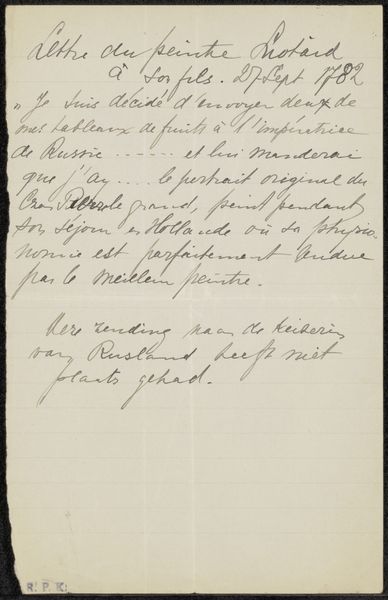 Lettre du peintre Liotard
à son fils. 27 Sept 1782
„ Je suis décidé d'envoyer deux de
mes tableaux de fruits à l'impératrice
de Russie ------ et lui manderai
que j'ay .... le portrait original du
Czar Pierre le grand, peint pendant
son séjour en Hollande où sa physio
nomie est parfaitement rendue
par le meilleur peintre.
Deze zending naar de Keizerin
van Rusland heeft niet
plaats gehad.
R. P. K.